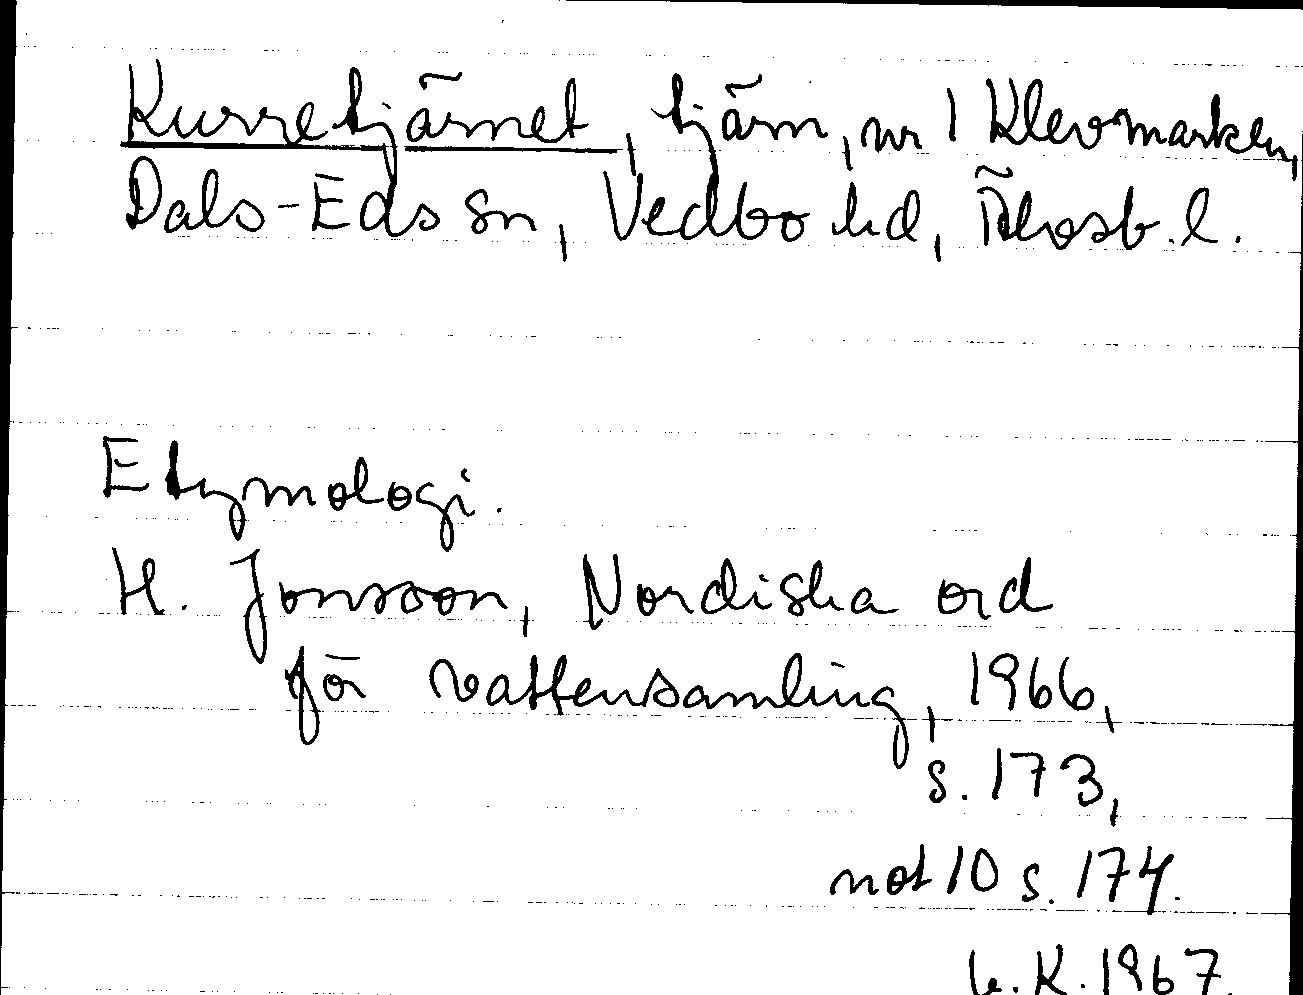 Kurretjärnet, tjärn, nr 1 Klevmarken,
Dals-Eds sn, Vedbo hd, Älvsb. l.
Etymologi.
H. Jonsson, Nordiska ord
för vattensamling, 1966,
s. 173,
not 10 s. 174.
K. 1967.